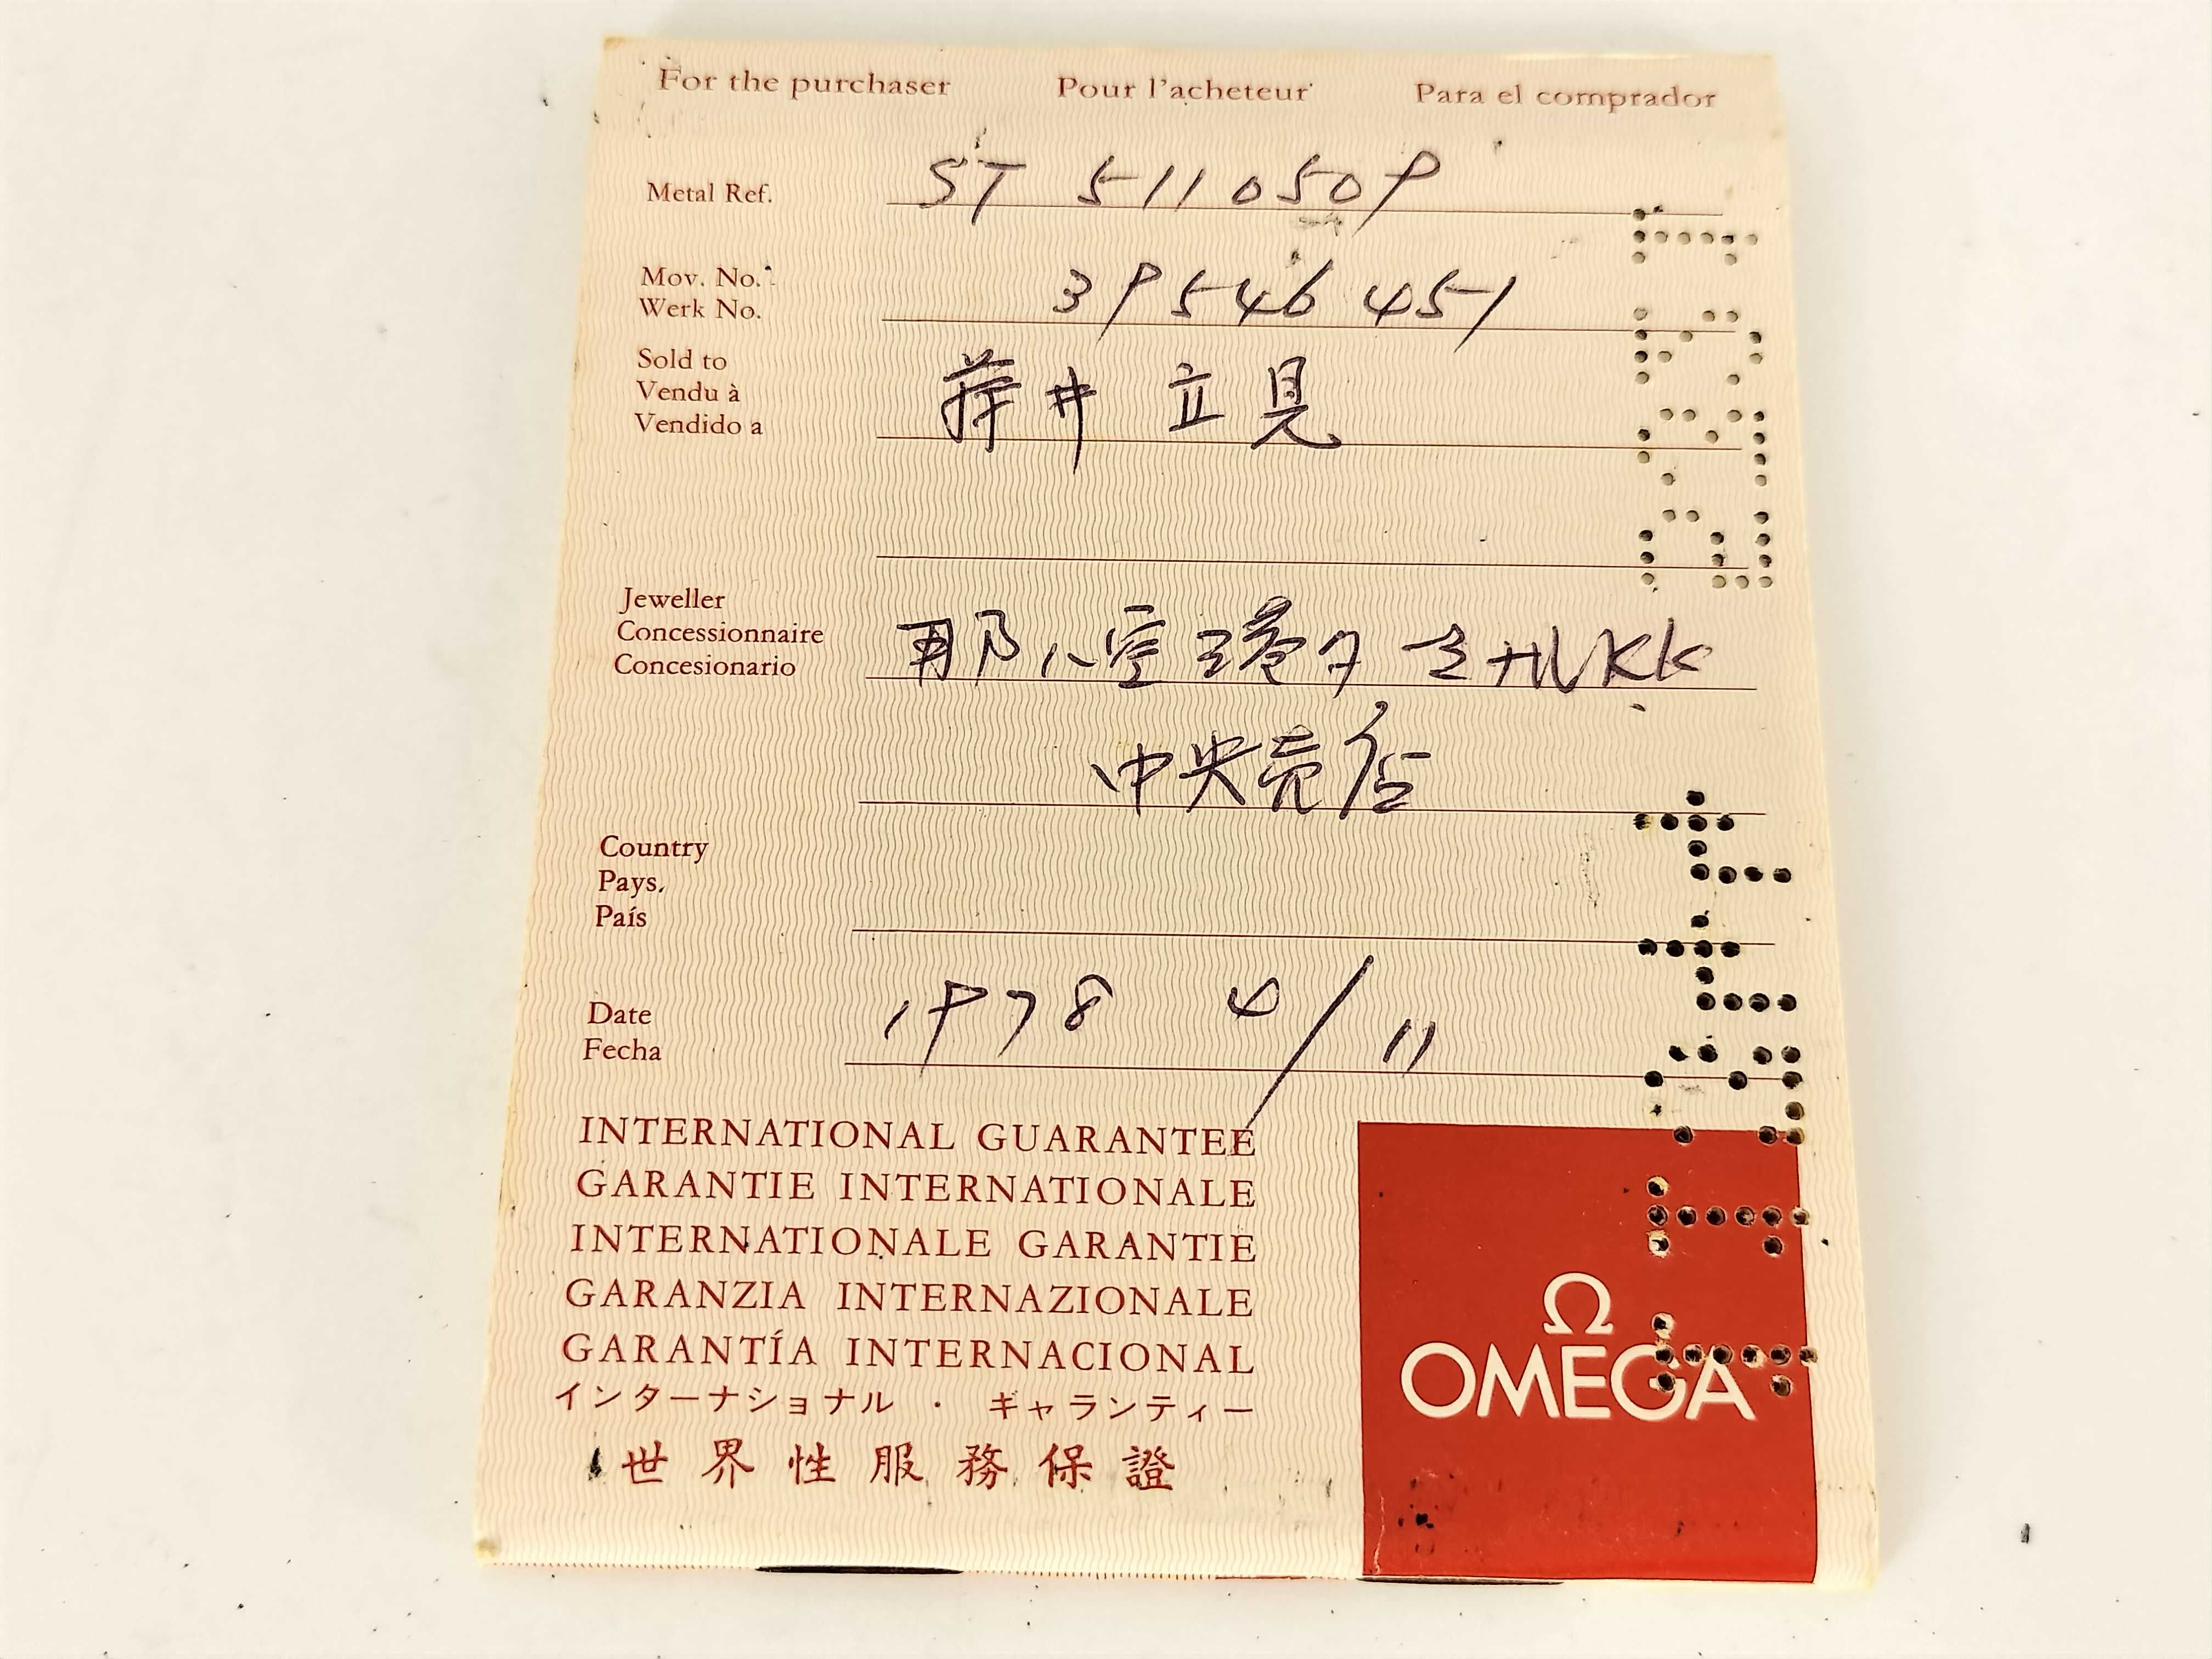 For the purchaser Pour l'acheteur Para el comprador
Metal Ref. ST 511 0509
Mov. No.
Werk No. 39546451
Sold to
Vendu à
Vendido a 井 立見
Jeweller
Concessionnaire
Concesionario 那ハ空港タミナルKK
中央売店
Country
Pays.
País
Date
Fecha 1978 4/11
INTERNATIONAL GUARANTEE
GARANTIE INTERNATIONALE
INTERNATIONALE GARANTIE
GARANZIA INTERNAZIONALE
GARANTÍA INTERNACIONAL
インターナショナル・ギャランティー
世界性服務保證
Ω
OMEGA